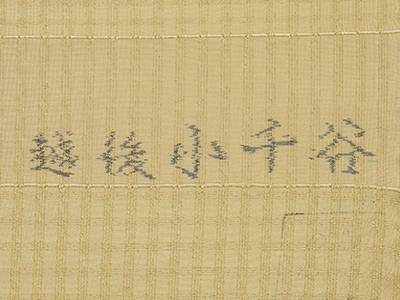 越後小千谷